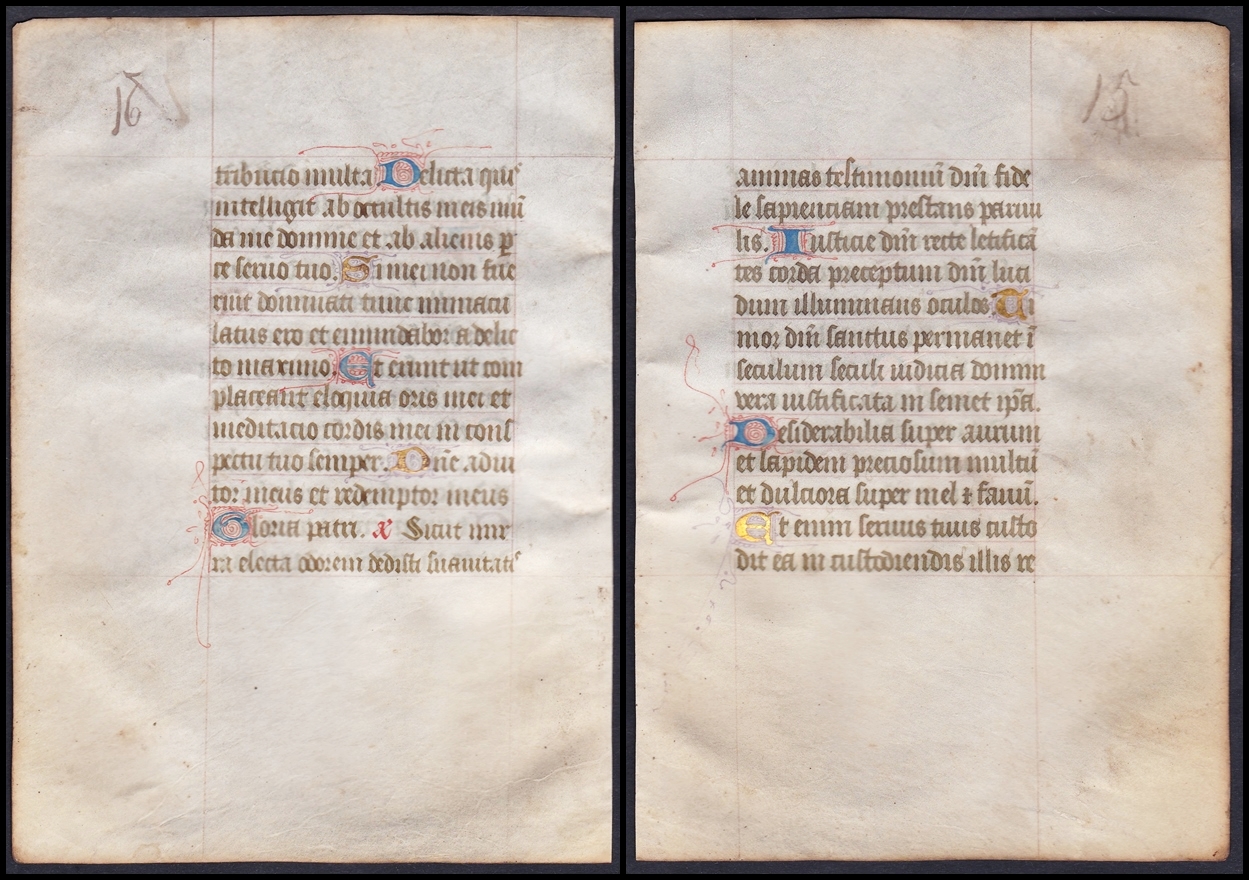 16
tribucio multa Delicta quis
intelligit ab occultis meis mū
da me domine et ab alienis p̄
ce seruo tuo. Si mei non fue
rint dominati tunc inmacu
latus ero et emundabor a delic
to maximo. Et erunt ut com
placeant eloquia oris mei et
meditacio cordis mei in cons
pectu tuo semper. Dn̄e adiu
tor meus et redemptor meus
Gloria patri. x Sicut mir
ra electa odorem dedisti suauitatis
15
animas testimoniū dn̄i fide
le sapienciam prestans paruu
lis. Iusticie dn̄i recte letificā
tes corda preceptum dn̄i luci
dum illuminans oculos Ti
mor dn̄i sanctus permanet ī
seculum seculi iudicia domini
vera iustificata in semet ip̄a.
Desiderabilia super aurum
et lapidem preciosum multū
et dulciora super mel ⁊ fauū.
Et enim seruus tuus custo
dit ea in custodiendis illis re